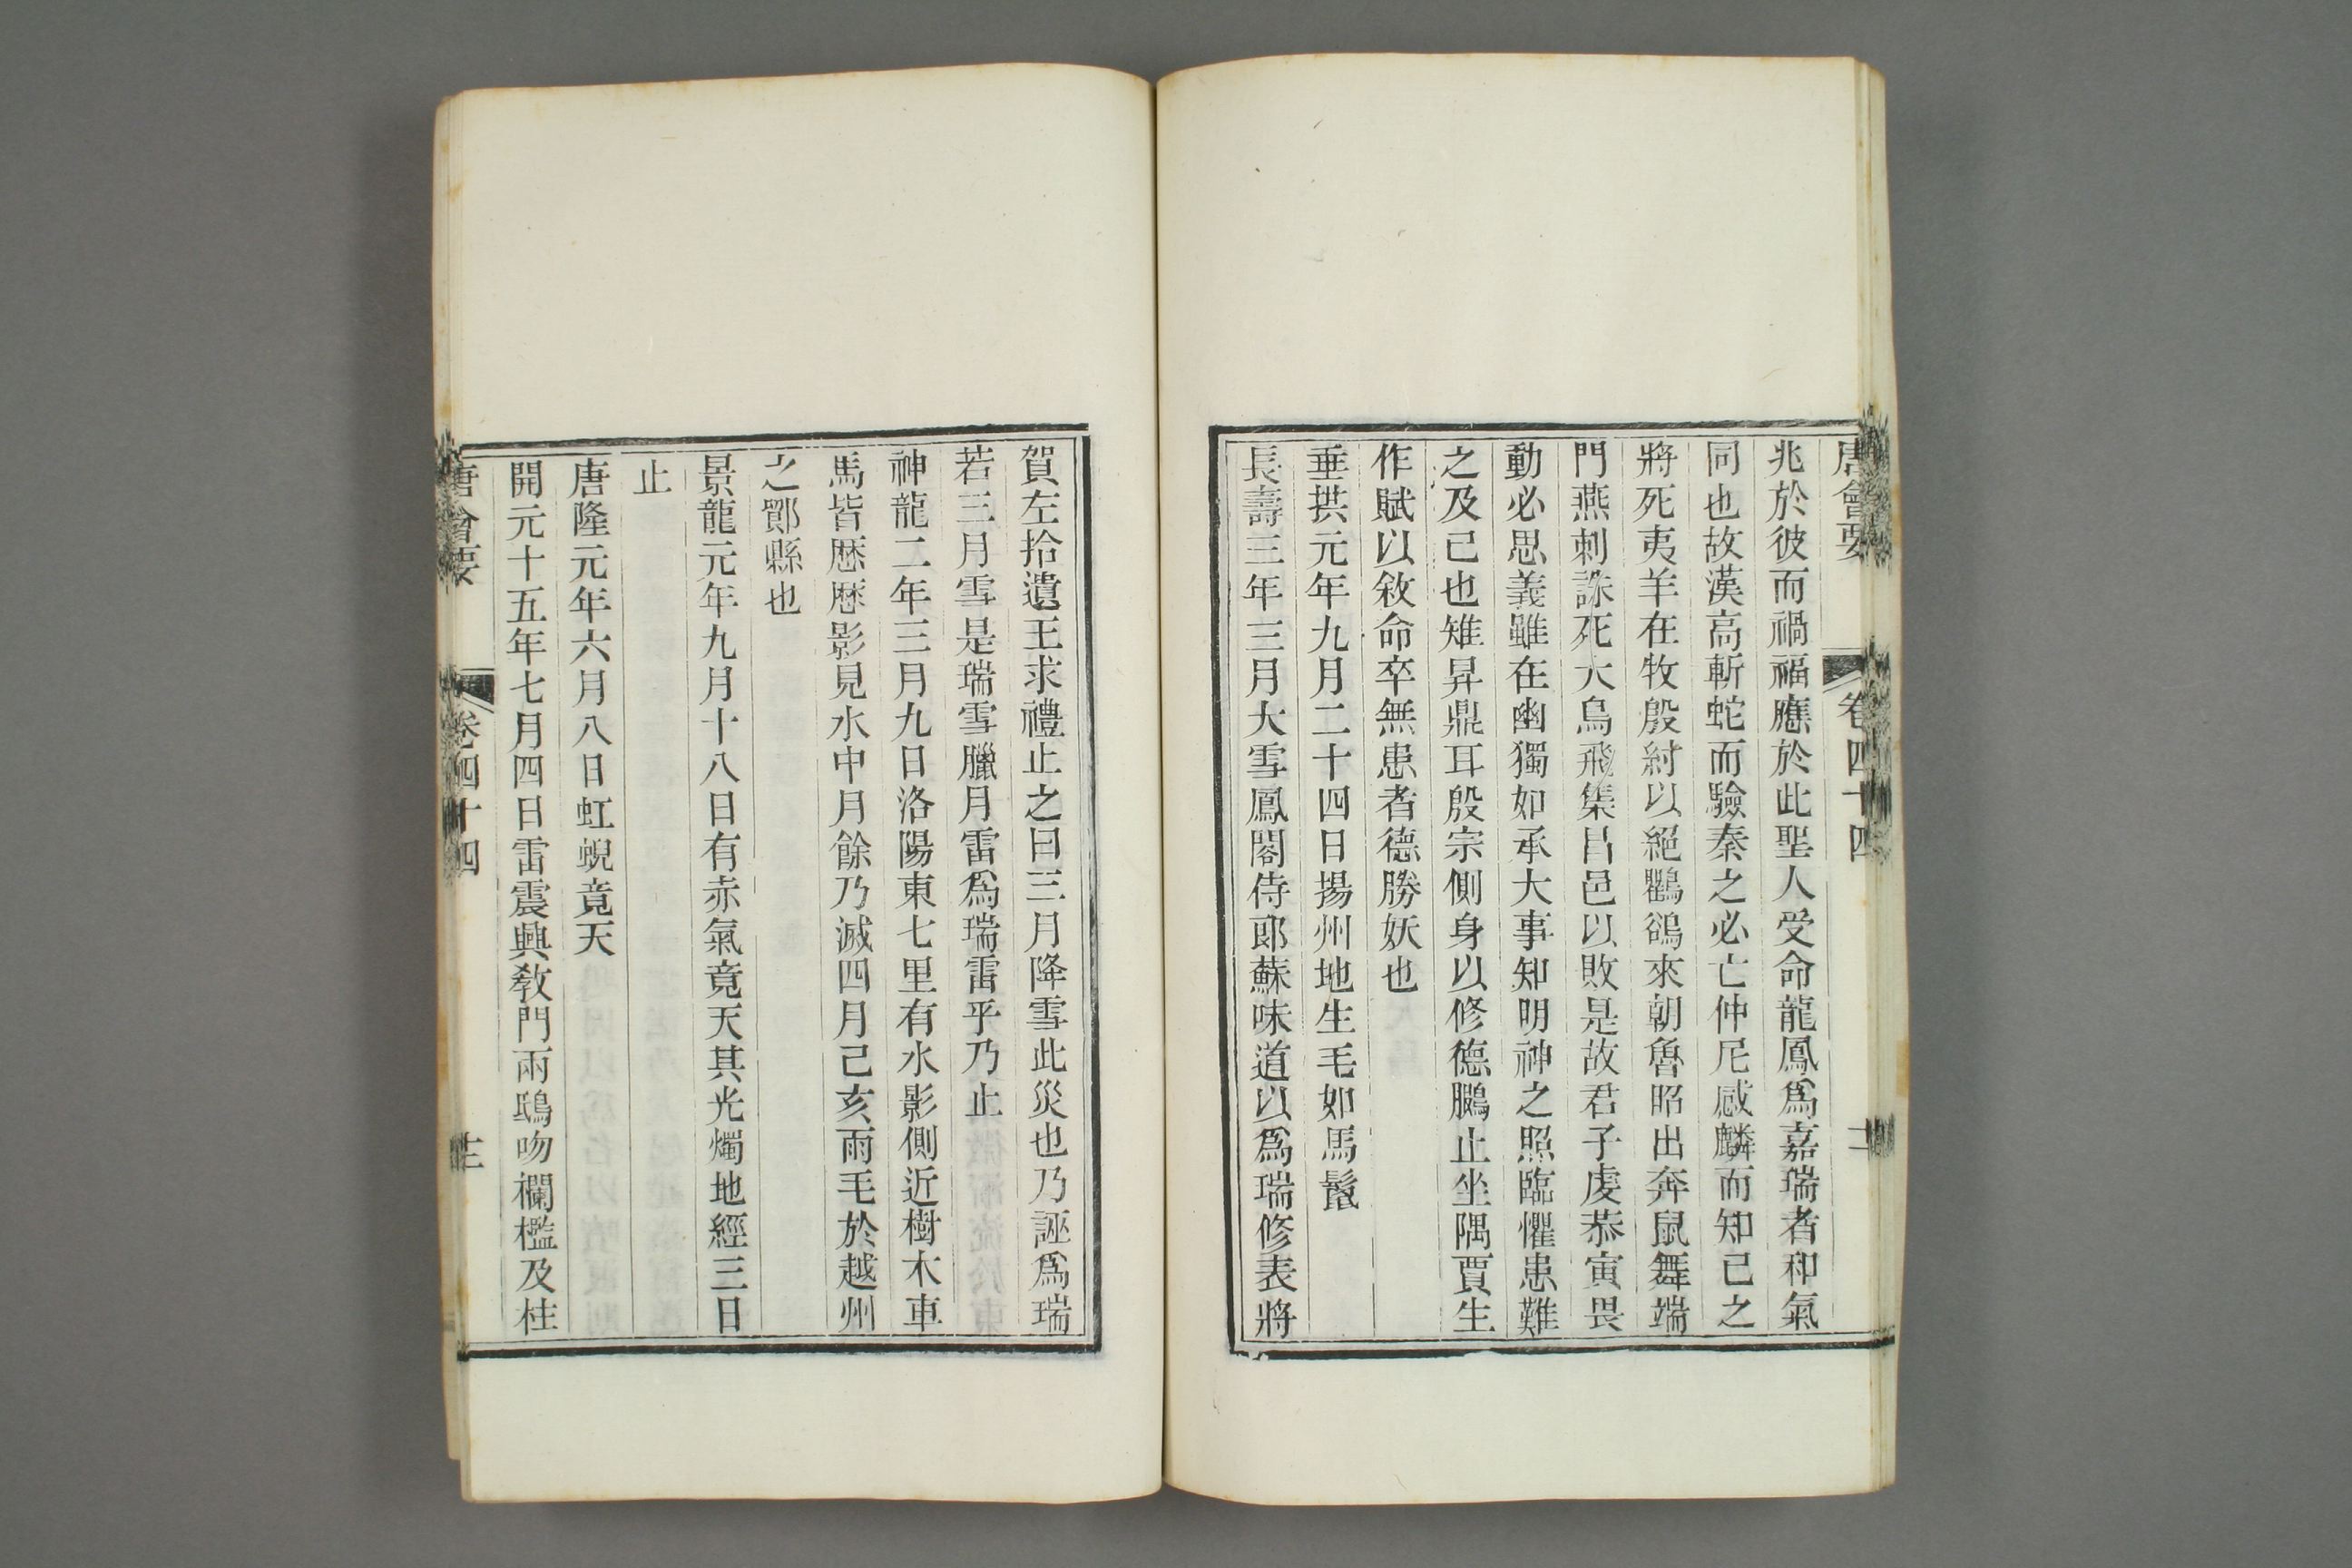 唐會要 卷四十四
兆於彼而禍福應於此聖人受命龍鳳爲嘉瑞者和氣
同也故漢高斬蛇而驗秦之必亡仲尼感麟而知已之
將死夷羊在牧殷紂以絕鸜鵒來朝魯昭出奔鼠舞端
門燕刺誅死大鳥飛集昌邑以敗是故君子虔恭寅畏
動必思義雖在幽獨如承大事知明神之照臨懼患難
之及已也雉昇鼎耳殷宗側身以修德鵩止坐隅賈生
作賦以敘命卒無患者德勝妖也
垂拱元年九月二十四日揚州地生毛如馬鬉
長壽三年三月大雪鳳閣侍郎蘇味道以爲瑞修表將
賀左拾遺王求禮止之曰三月降雪此災也乃誣爲瑞
若三月雪是瑞雪臘月雷爲瑞雷乎乃止
神龍二年三月九日洛陽東七里有水影側近樹木車
馬皆歷歷影見水中月餘乃滅四月己亥雨毛於越州
之鄮縣也
景龍元年九月十八日有赤氣竟天其光燭地經三日
止
唐隆元年六月八日虹蜺竟天
開元十五年七月四日雷震興敎門兩鴟吻欄檻及柱
唐會要 卷四十四